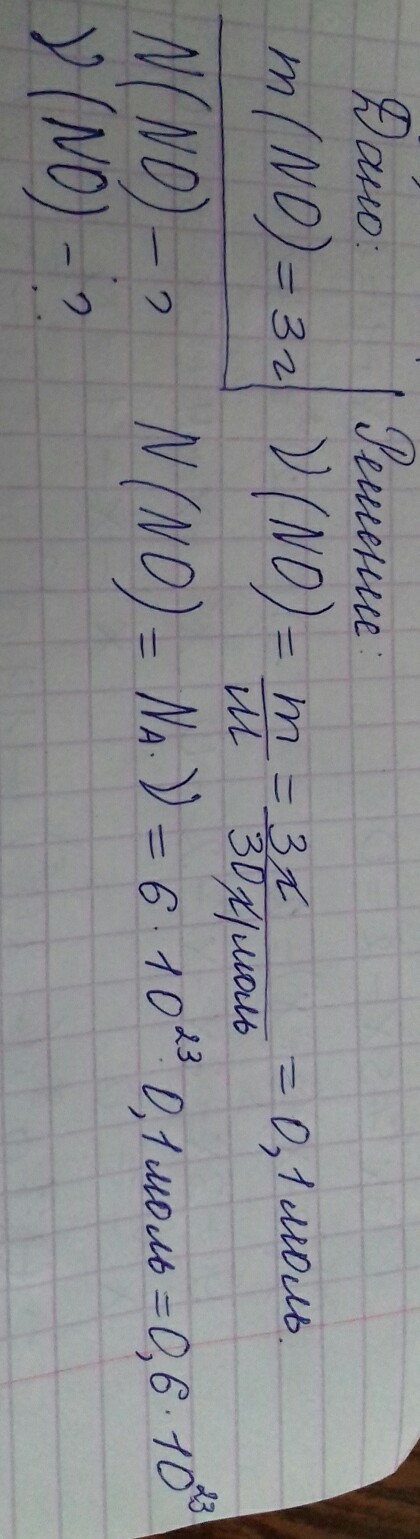 Дано:
m(NO) = 3г
N(NO) - ?
ν(NO) - ?
Решение:
ν(NO) = m/M = 3г/30г/моль = 0,1 моль.
N(NO) = Nᴀ · ν = 6 · 10²³ · 0,1 моль = 0,6 · 10²³